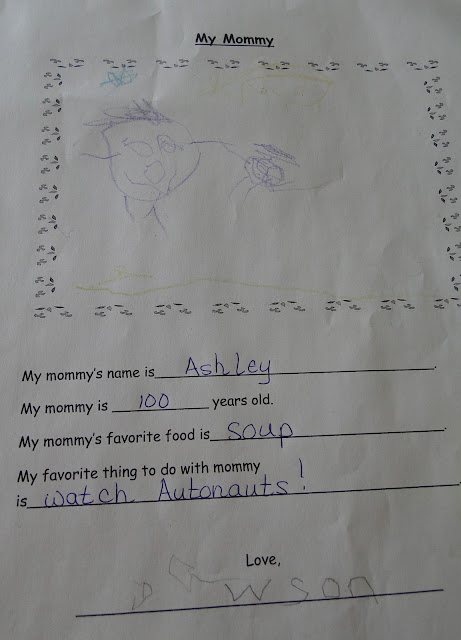 My Mommy
My mommy's name is Ashley.
My mommy is 100 years old.
My mommy's favorite food is soup.
My favorite thing to do with mommy
is watch Autonauts!.
Love,
DAwson